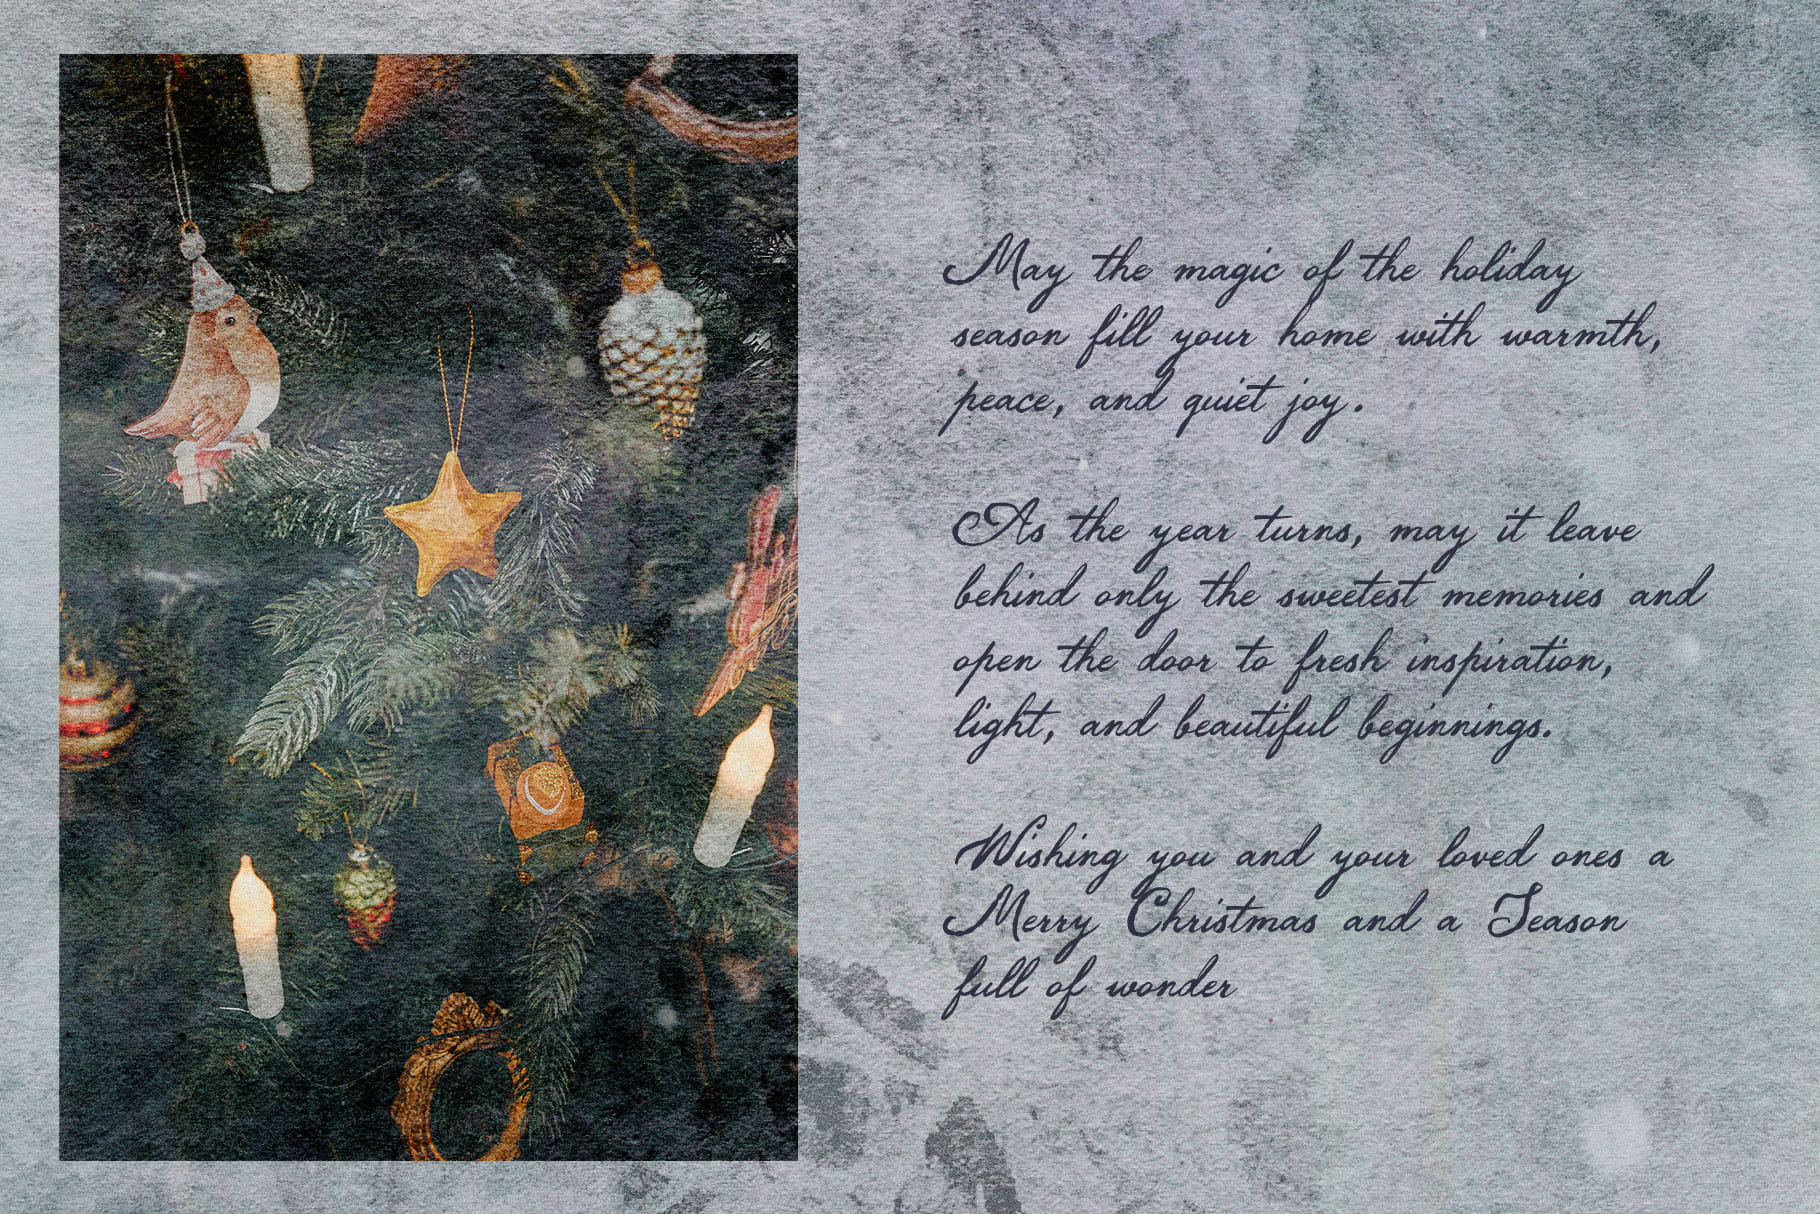 May the magic of the holiday
season fill your home with warmth,
peace, and quiet joy.
As the year turns, may it leave
behind only the sweetest memories and
open the door to fresh inspiration,
light, and beautiful beginnings.
Wishing you and your loved ones a
Merry Christmas and a Season
full of wonder